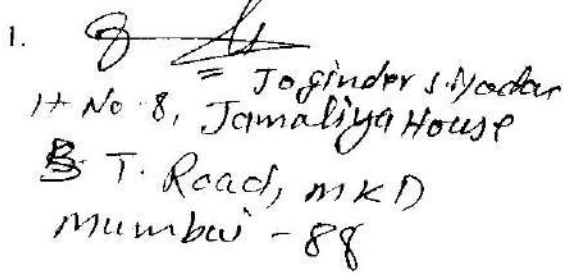 1.
= Joginder S. Yadav
H No. 8, Jamaliya House
B. T. Road, MKD
Mumbai - 88